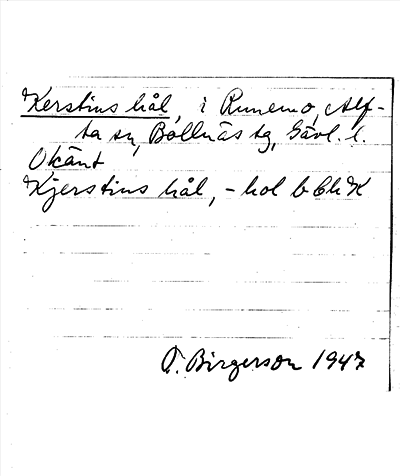 Kerstins hål, i Runemo, Alf-
ta sn, Bollnäs tg, Gävl. l.
Okänt
Kjerstins hål, - hol b Ch K
O. Birgerson 1947